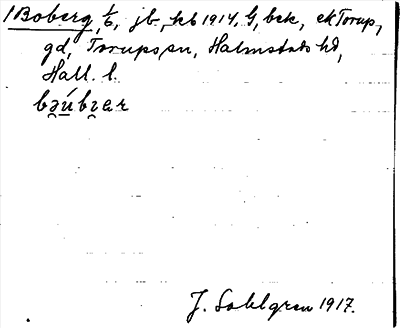 1 Boberg, 1/6, jb, kb 1914, G, bsk, ek Torup,
gd, Torups sn, Halmstads hd,
Hall. l.
J. Sahlgren 1917.